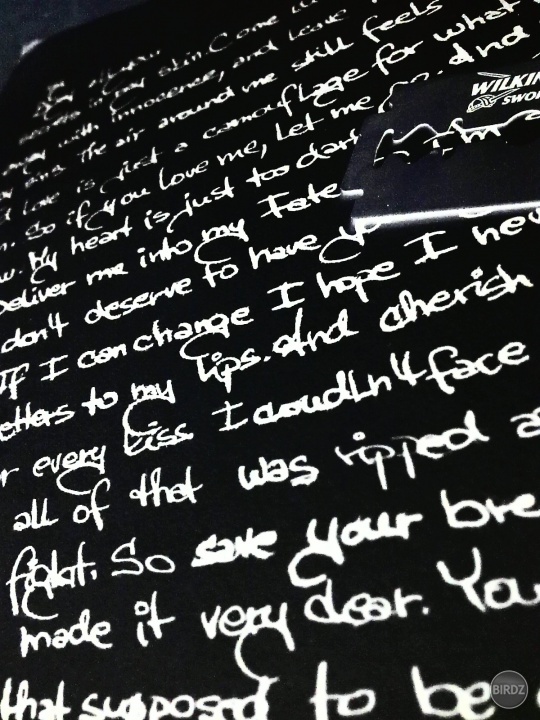 secrets in my skin. Come
away with innocence, and leave
The air around me still feels
Love is just a camouflage for what
So if you love me, let me go. And
My heart is just too dark I'm
Deliver me into my Fate
don't deserve to have yo
If I can change I hope I nev
etters to my lips. And cherish
r every kiss I couldn't face
all of that was ripped a
fight. So save your bre
made it very clear. You
that supposed to be
WILKIN
SWOR
BIRDZ